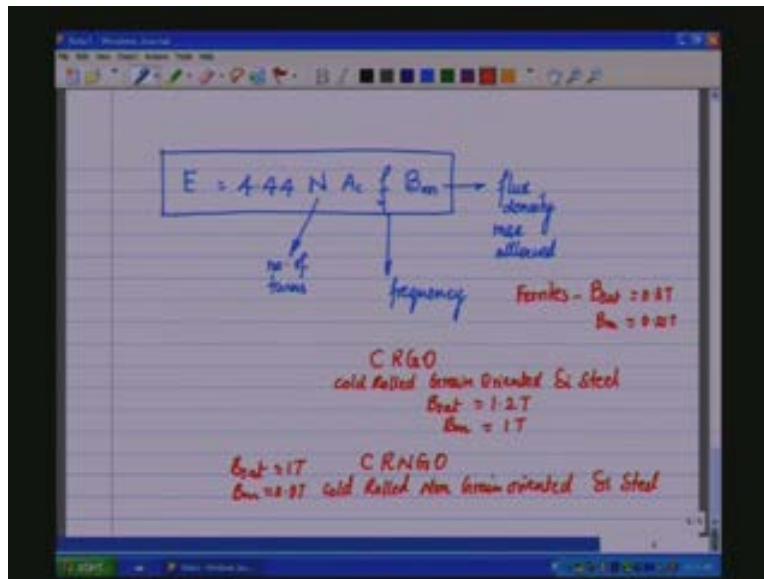 E = 4.44 N Ac f Bm → flux
density
max
allowed
no. of
turns
frequency
Ferrites - Bsat = 0.3T
Bm =
CRGO
Cold Rolled Grain Oriented Si Steel
Bsat = 1.2T
Bm = 1T
Bsat = 1T CRNGO
Bm = Cold Rolled Non Grain oriented Si Steel